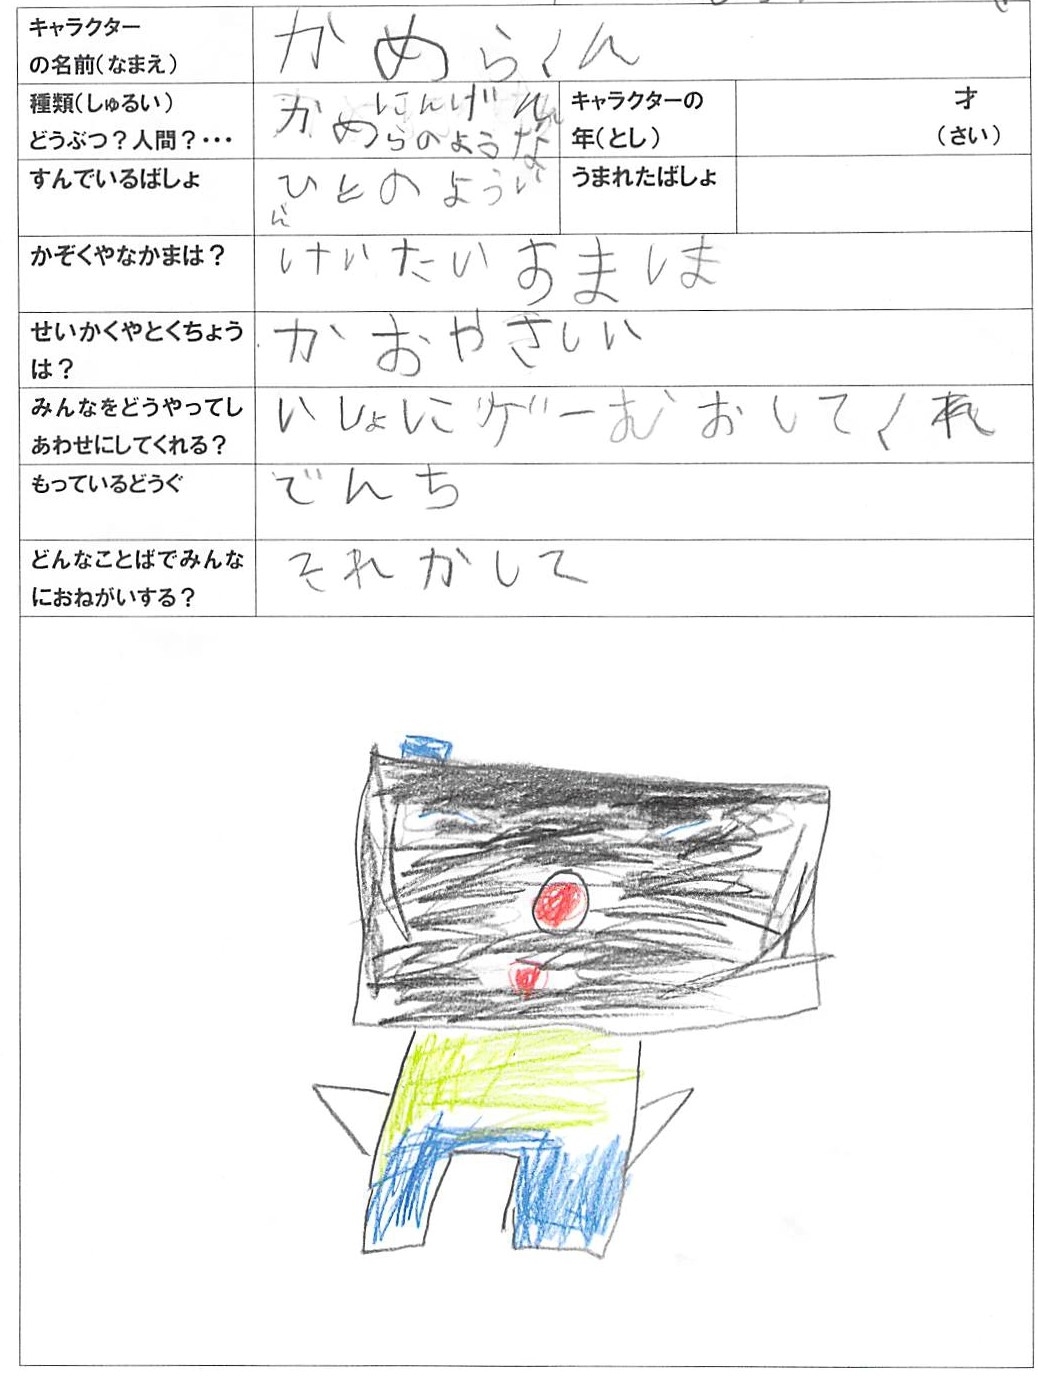 キャラクター
の名前(なまえ)
かめらくん
種類(しゅるい)
どうぶつ?人間?・・・
かめらのような
にんげん
キャラクターの
年(とし)
才
(さい)
すんでいるばしょ
ひとのようい
うまれたばしょ
かぞくやなかまは?
けいたいおましま
せいかくやとくちょう
は?
かおやさしい
みんなをどうやってし
あわせにしてくれる?
いしょにゲーむおしてくれ
もっているどうぐ
でんち
どんなことばでみんな
におねがいする?
それかして